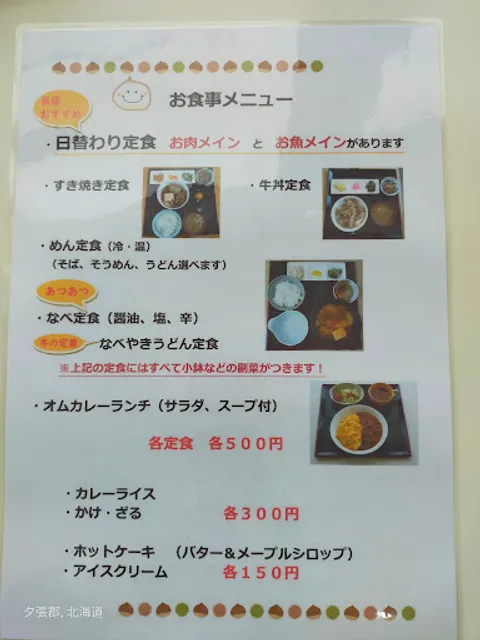 お食事メニュー
当店
おすすめ
・日替わり定食 お肉メイン と お魚メインがあります
・すき焼き定食 ・牛丼定食
・めん定食（冷・温）
（そば、そうめん、うどん選べます）
あつあつ
・なべ定食（醤油、塩、辛）
冬の定番 なべやきうどん定食
※上記の定食にはすべて小鉢などの副菜がつきます！
・オムカレーランチ（サラダ、スープ付）
各定食 各５００円
・カレーライス
・かけ・ざる 各３００円
・ホットケーキ （バター＆メープルシロップ）
・アイスクリーム 各１５０円
夕張郡, 北海道